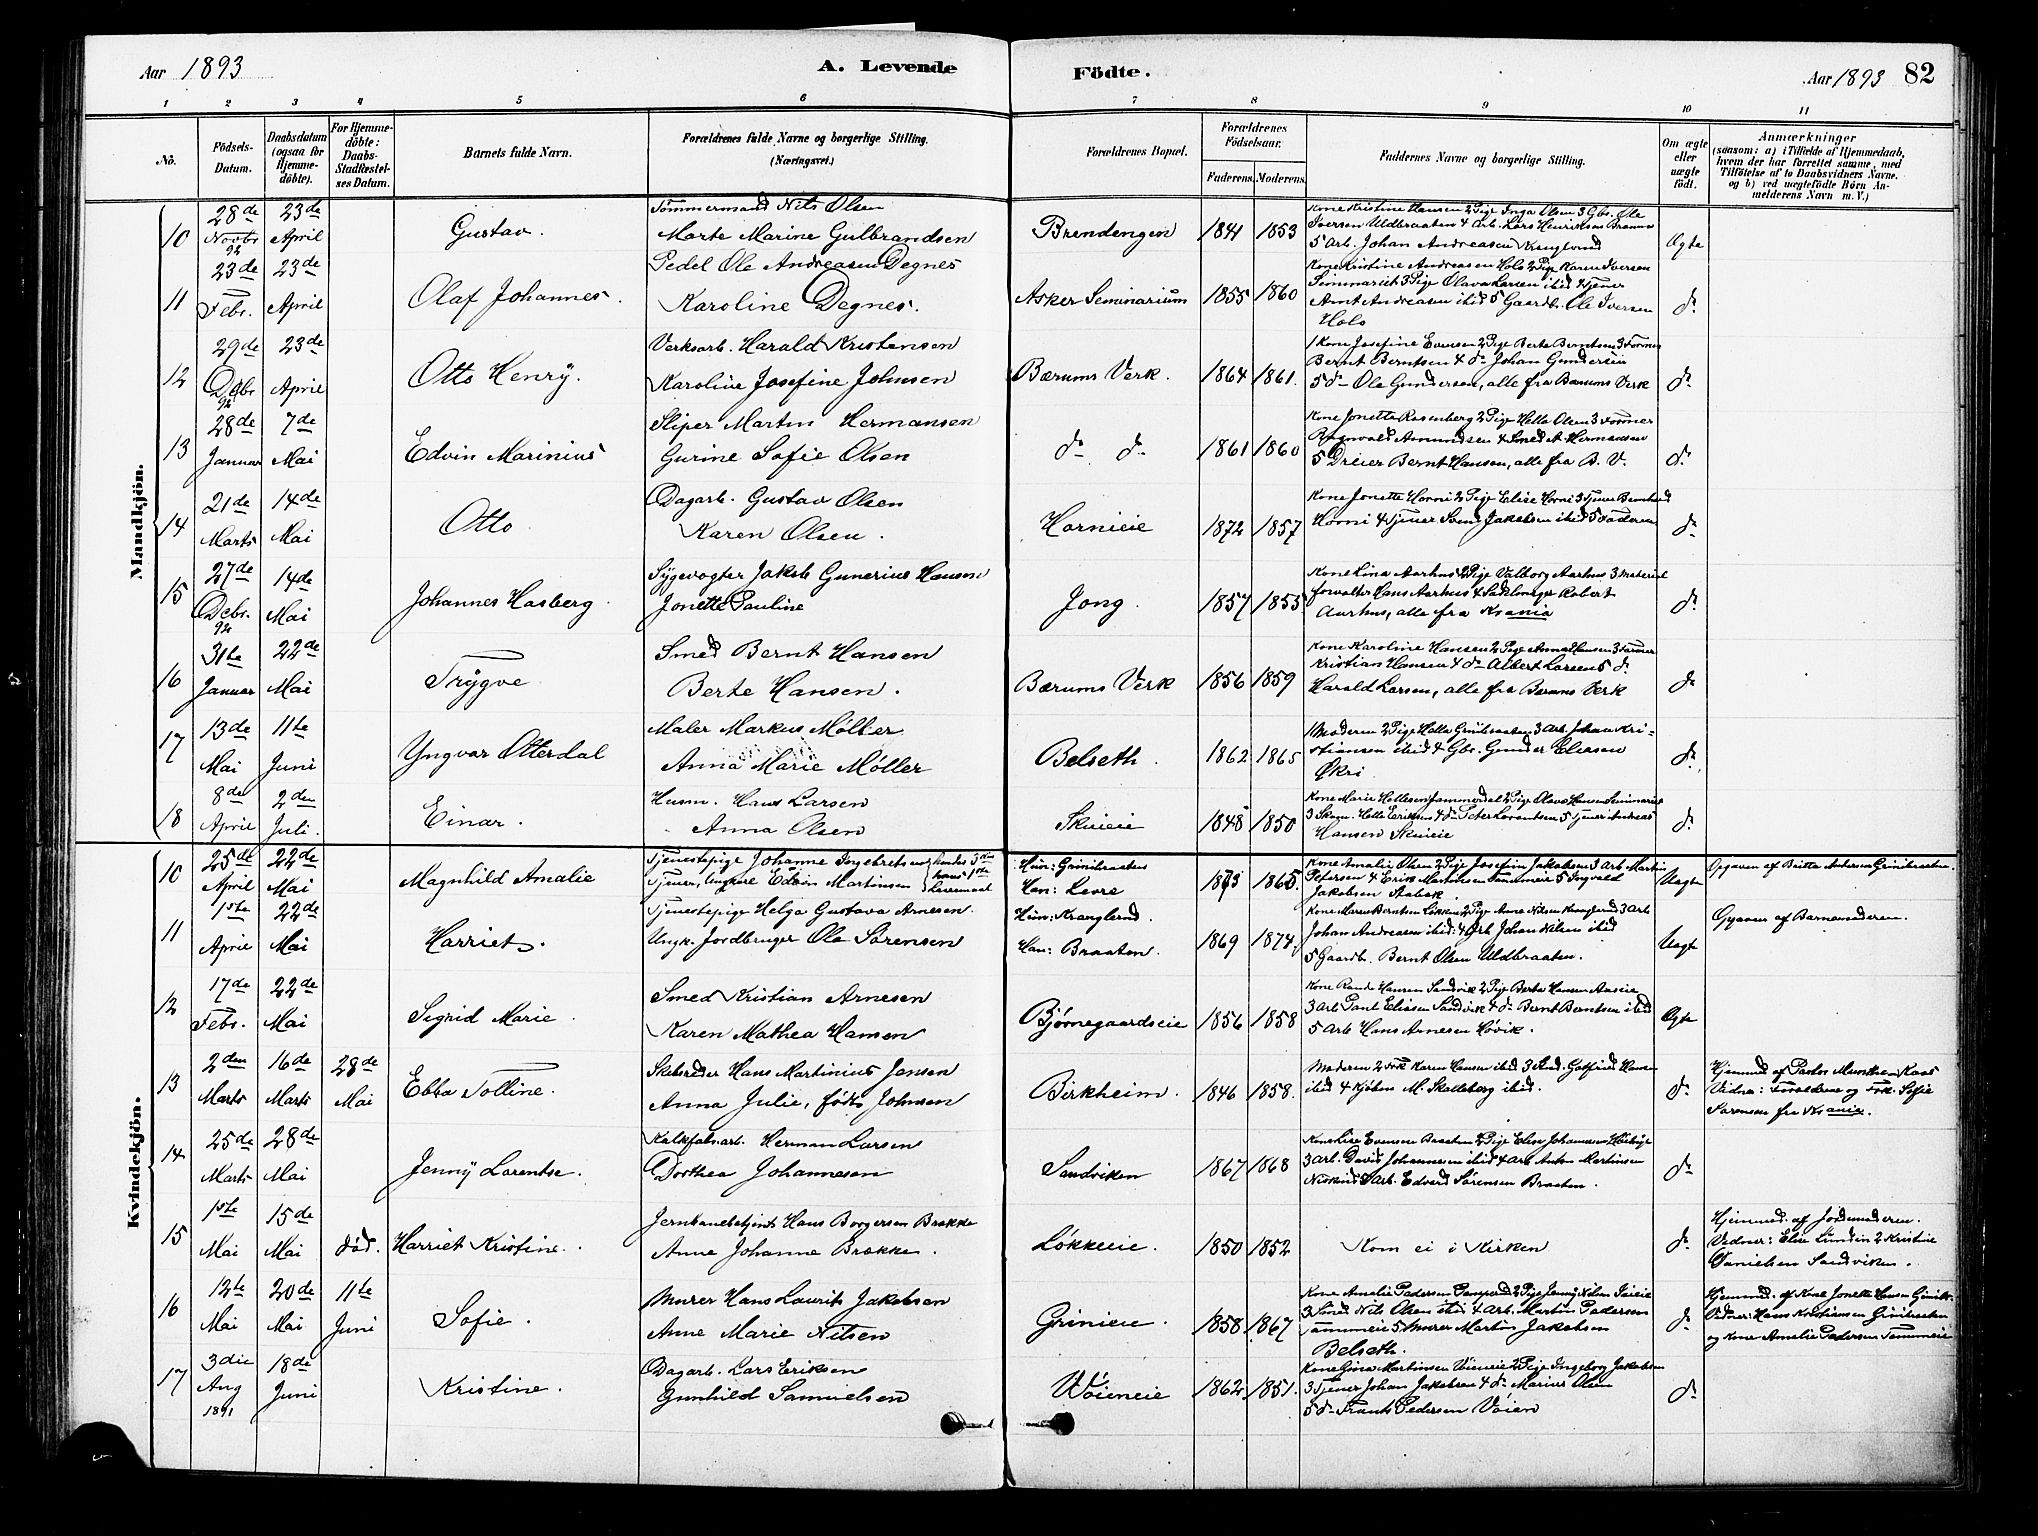 Aar 1893 A. Levende Födte. Aar 1893 82
1 2 3 4 5 6 7 8 9 10 11
No. Födsels-Datum. Daabsdatum (ogsaa for Hjemme-döbte). For Hjemme-döbte: Daabs-Stadfæstel-ses Datum. Barnets fulde Navn. Forældrenes fulde Navne og borgerlige Stilling. (Næringsvei.) Forældrenes Bopæl. Forældrenes Födselsaar. Faderens. Moderens. Faddernes Navne og borgerlige Stilling. Om ægte eller uægte født. Anmærkninger (saasom: a) i Tilfælde af Hjemmedaab, hvem der har forrettet samme, med Tilföielse af to Daabsvidners Navne. og b) ved uægtefödte Börn An-melderens Navn m. V.)
Mandkjön.
10 28de Novbr 92 23de April Gustav. Tömmermand Nils Olsen
Marte Marine Gulbrandsen Brendengen 1841 1853 Kone Kristine Hansen 2 Pige Inga Olsen 3 Gbr. Ole
Iversen Uldbraaten 4 Arb. Lars Henriksen
5 Arb. Johan Andreasen Kranglund Ægte
11 23de Febr. 23de April Olaf Johannes. Pedel Ole Andreasen Degnes
Karoline Degnes. Asker Seminarium 1855 1860 Kone Kristine Andreasen Hols 2 Pige Karen Iversen
Seminariet 3 Pige Olava Larsen ibid 4 Tjener
Amt Andreasen ibid 5 Gaardb. Ole Iversen
Hols do
12 29de Debr 92 23de April Otto Henry. Verksarb. Harald Kristensen
Karoline Josefine Johnsen Bærums Verk. 1864 1861. 1 Kone Josefine Evensen 2 Pige Berte Berntsen 3 Former
Bernt Berntsen 4 do Johan Gundersen
5 do Ole Gundersen, alle fra Bærums Verk do
13 28de Januar 7de Mai Edvin Marinius Sliper Martin Hermansen
Gurine Sofie Olsen do do 1861 1860 Kone Jonette Rosenberg 2 Pige Helle Olsen 3 Former
Ragnvald Amundsen 4 Smed A. Hermansen
5 Dreier Bernt Hansen, alle fra B. V. do
14 21de Marts 14de Mai Otto Dagarb. Gustav Olsen
Karen Olsen. Hornieie 1872 1857 Kone Jonette Horni 2 Pige Elise Horni 3 Tjener Bernhard
Horni 4 Tjener Jakobsen ibid 5 Faderen do
15 27de Debr. 92 14de Mai Johannes Hasberg. Sygevogter Jakob Gunerius Hansen
Jonette Pauline Jong. 1857 1855 Kone Lina Aarhus 2 Pige Valborg Aarhus 3 Material
forvalter Hans Aarhus 4 Robert
Aarhus, alle fra Krania do
16 31te Januar 22de Mai Trygve. Smed Bernt Hansen
Berte Hansen. Bærums Verk 1856 1859 Kone Karoline Hansen 2 Pige Anna Hansen 3 Former
Kristian Hansen 4 do Albert Larsen 5 do
Harald Larsen, alle fra Bærums Verk do
17 13de Mai 11te Juni Yngvar Otterdal Maler Markus Möller
Anna Marie Möller Belseth. 1862 1865 1 Moderen 2 Pige Helle Grinibraaten 3 Arb. Johan Kri-
stiansen ibid 4 Gbr. Gunder Eliasen
Økri do
18 8de April 2den Juli. Einar. Husm. Hans Larsen
Anna Olsen Skuieie 1848 1850 Kone Marie Hellesen Jammerdal 2 Pige Olava Hansen Seminariet
3 Skom. Helle Eriksen 4 do Peter Lorentsen 5 Tjener Andreas
Hansen Skuieie do
Kvindekjön.
10 25de April 22de Mai Magnhild Amalie Tjenestepige Johanne Ingebretsen
Tjener, Ungkarl Edvin Martinsen hendes 3die hans 1ste Leiermaal Hun: Grinibraaten
Han: Levre 1873 1865. Kone Amalie Olsen 2 Pige Josefine Jakobsen 3 Arb Martin
Petersen 4 Erik Martinsen Tømmeie 5 Ingvald
Jakobsen Stabæk. Uægte Opgaven af Britta Andersen Grinibraaten
11 1ste April 22de Mai Harriet. Tjenestepige Helga Gustava Arnesen.
Ungk. Jordbruger Ole Sørensen Hun: Kranglund.
Han: Braaten. 1869 1874 Kone Maren Berntsen Løkken 2 Pige Anne Nilsen Kranglund 3 Arb
Johan Andreasen ibid 4 Arb Johan Nilsen ibid
5 Gaardb. Bernt Olsen Uldbraaten. Uægte Opgaven af Barnemoderen.
12 17de Febr. 22de Mai Sigrid Marie. Smed Kristian Arnesen
Karen Mathea Hansen Bjørnegaardseie 1856 1858 Kone Hansen Sandvik 2 Pige Berte Hansen
3 Arb Paul Eliasen Sandvik 4 do Bernt Berntsen ibid
5 Arb Hans Arnesen Høvik. Ægte
13 2den Marts 16de Marts 28de Mai Ebba Tolline. Skibsreder Hans Martinius Jensen
Anna Julie, født Johnsen Birkheim. 1846 1858. Moderen 2 Frk Karen Hansen ibid 3 Gotfried Hansen
ibid 4 Kjøbm. M. Skolleborg ibid. do Hjemmed. af Pastor Munthe Kaas
Vidner: Forældrene og Frk. Sofie
Sørensen fra Krania.
14 25de Marts 28de Mai Jenny Lorentse. Kalkfabrarb. Herman Larsen
Dorthea Johannesen Sandviken 1867 1868 Kone Lise Evensen Braaten 2 Pige Elise Johannesen
3 Arb. David Johannesen ibid 4 Arb Anton Martinsen
5 Arb. Edvard Sørensen Braaten. do
15 1ste Mai 15de Mai død. Harriet Kristine. Jernbanebetjent Hans Borgersen Brække
Anne Johanne Brække. Løkkeeie. 1850 1852 Kom ei i Kirken do Hjemmed. af Jordmoderen.
Vidner: Elise Lundin 2 Kristine
Danielsen Sandviken.
16 12te Mai 20de Mai 11te Juni Sofie. Murer Hans Laurits Jakobsen
Anne Marie Nilsen Grinieie. 1858 1867 Kone Amalie Pedersen 2 Pige Jenny Nilsen
3 Nils Olsen ibid 4 Arb. Martin Pedersen
Tømmeie 5 Murer Martin Jakobsen
Belseth. do Hjemmed. af Kone Jonette Hansen Grinib.
Vidner: Hans Kristiansen Grinibraaten
og Kone Amelie Pedersen Tømmeie
17 3die Aug 1891 18de Juni Kristine. Dagarb. Lars Eriksen
Gunhild Samuelsen Vøieneie 1862 1851. Kone Gina Martinsen Vøieneie 2 Pige Ingeborg Jakobsen
3 Tjener Johan Jakobsen 4 do Marius Olsen
5 do Frants Pedersen Vøien do